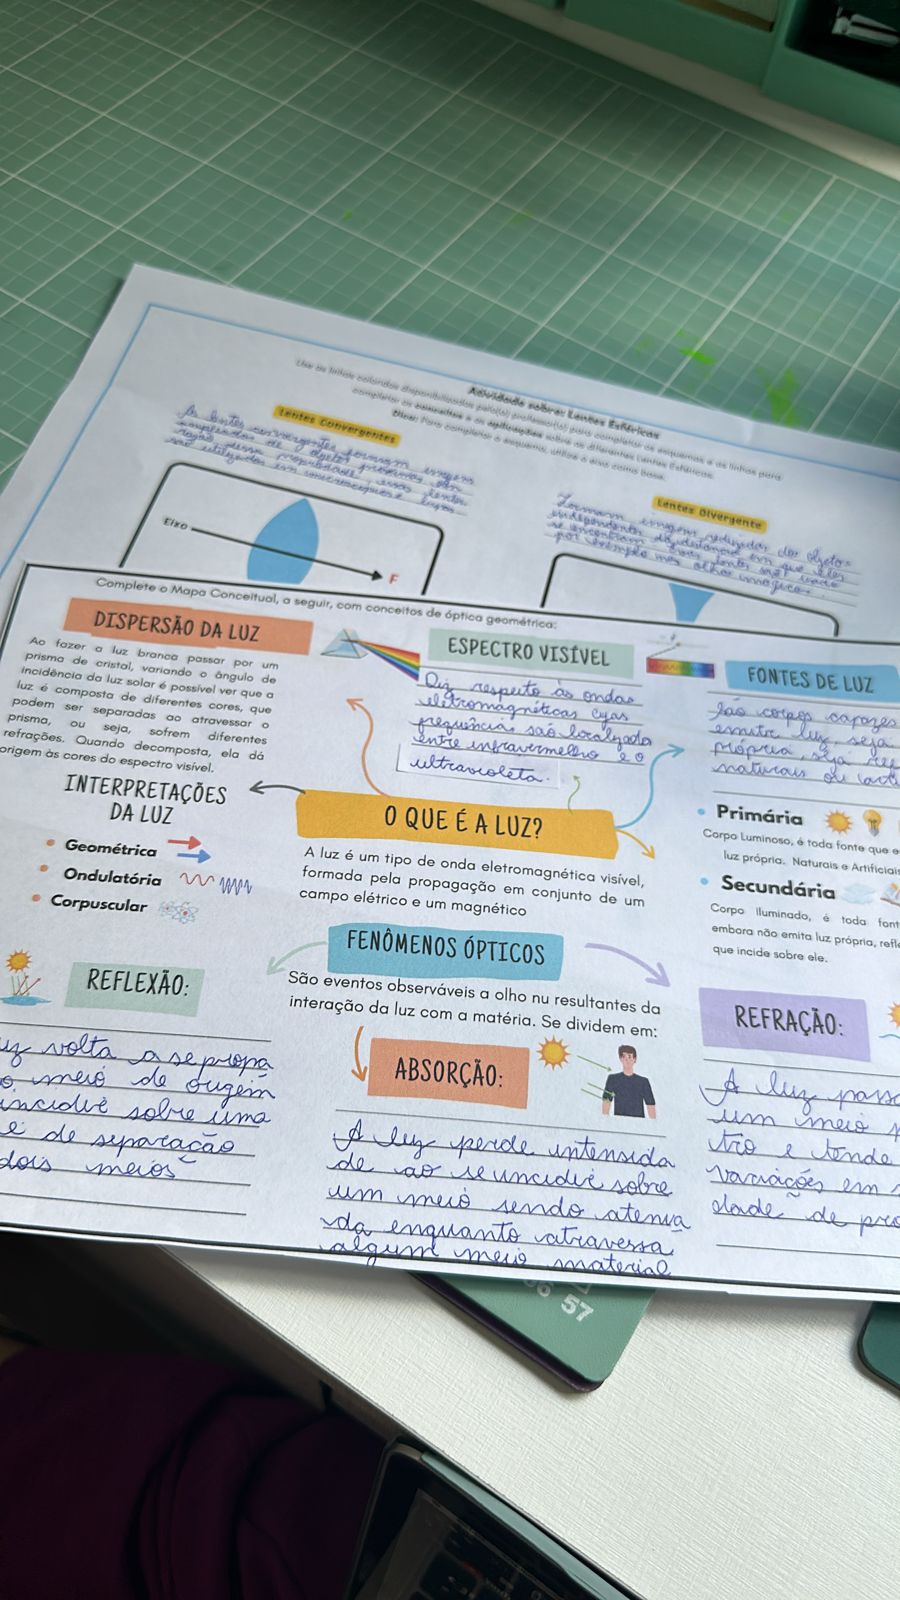 Atividade sobre: Lentes Esféricas
Use as linhas coloridas disponibilizadas pelo(a) professor(a) para completar os esquemas e as linhas para
completar os conceitos e as aplicações sobre as diferentes Lentes Esféricas.
Dica: Para completar o esquema, utilize o eixo como base.
Lentes Convergentes
As lentes convergentes formam imagens
Lentes Divergente
Formam imagem reduzidas dos objetos
independente da distância em que eles
se encontram
por exemplo nos olhos
Eixo
F
Complete o Mapa Conceitual, a seguir, com conceitos de óptica geométrica:
DISPERSÃO DA LUZ
Ao fazer a luz branca passar por um
prisma de cristal, variando o ângulo de
incidência da luz solar é possível ver que a
luz é composta de diferentes cores, que
podem ser separadas ao atravessar o
prisma, ou seja, sofrem diferentes
refrações. Quando decomposta, ela dá
origem às cores do espectro visível.
ESPECTRO VISÍVEL
Diz respeito às ondas
eletromagnéticas cujas
frequências são localizada
entre infravermelho e o
ultravioleta.
FONTES DE LUZ
São corpos capazes
emitir luz, seja
própria, seja
naturais ou
Primária
Corpo Luminoso, é toda fonte que e
luz própria. Naturais e Artificiais
Secundária
Corpo iluminado, é toda font
embora não emita luz própria, refl
que incide sobre ele.
INTERPRETAÇÕES
DA LUZ
Geométrica
Ondulatória
Corpuscular
O QUE É A LUZ?
A luz é um tipo de onda eletromagnética visível,
formada pela propagação em conjunto de um
campo elétrico e um magnético
FENÔMENOS ÓPTICOS
São eventos observáveis a olho nu resultantes da
interação da luz com a matéria. Se dividem em:
REFLEXÃO:
uz volta a se propa
o meio de origem
incidir sobre uma
e de separação
dois meios
ABSORÇÃO:
A luz perde intensida
de ao se incidir sobre
um meio sendo atenua
da enquanto atravessa
algum meio material
REFRAÇÃO:
A luz passa
um meio p
tro e tende
variações em
dade de pro
57